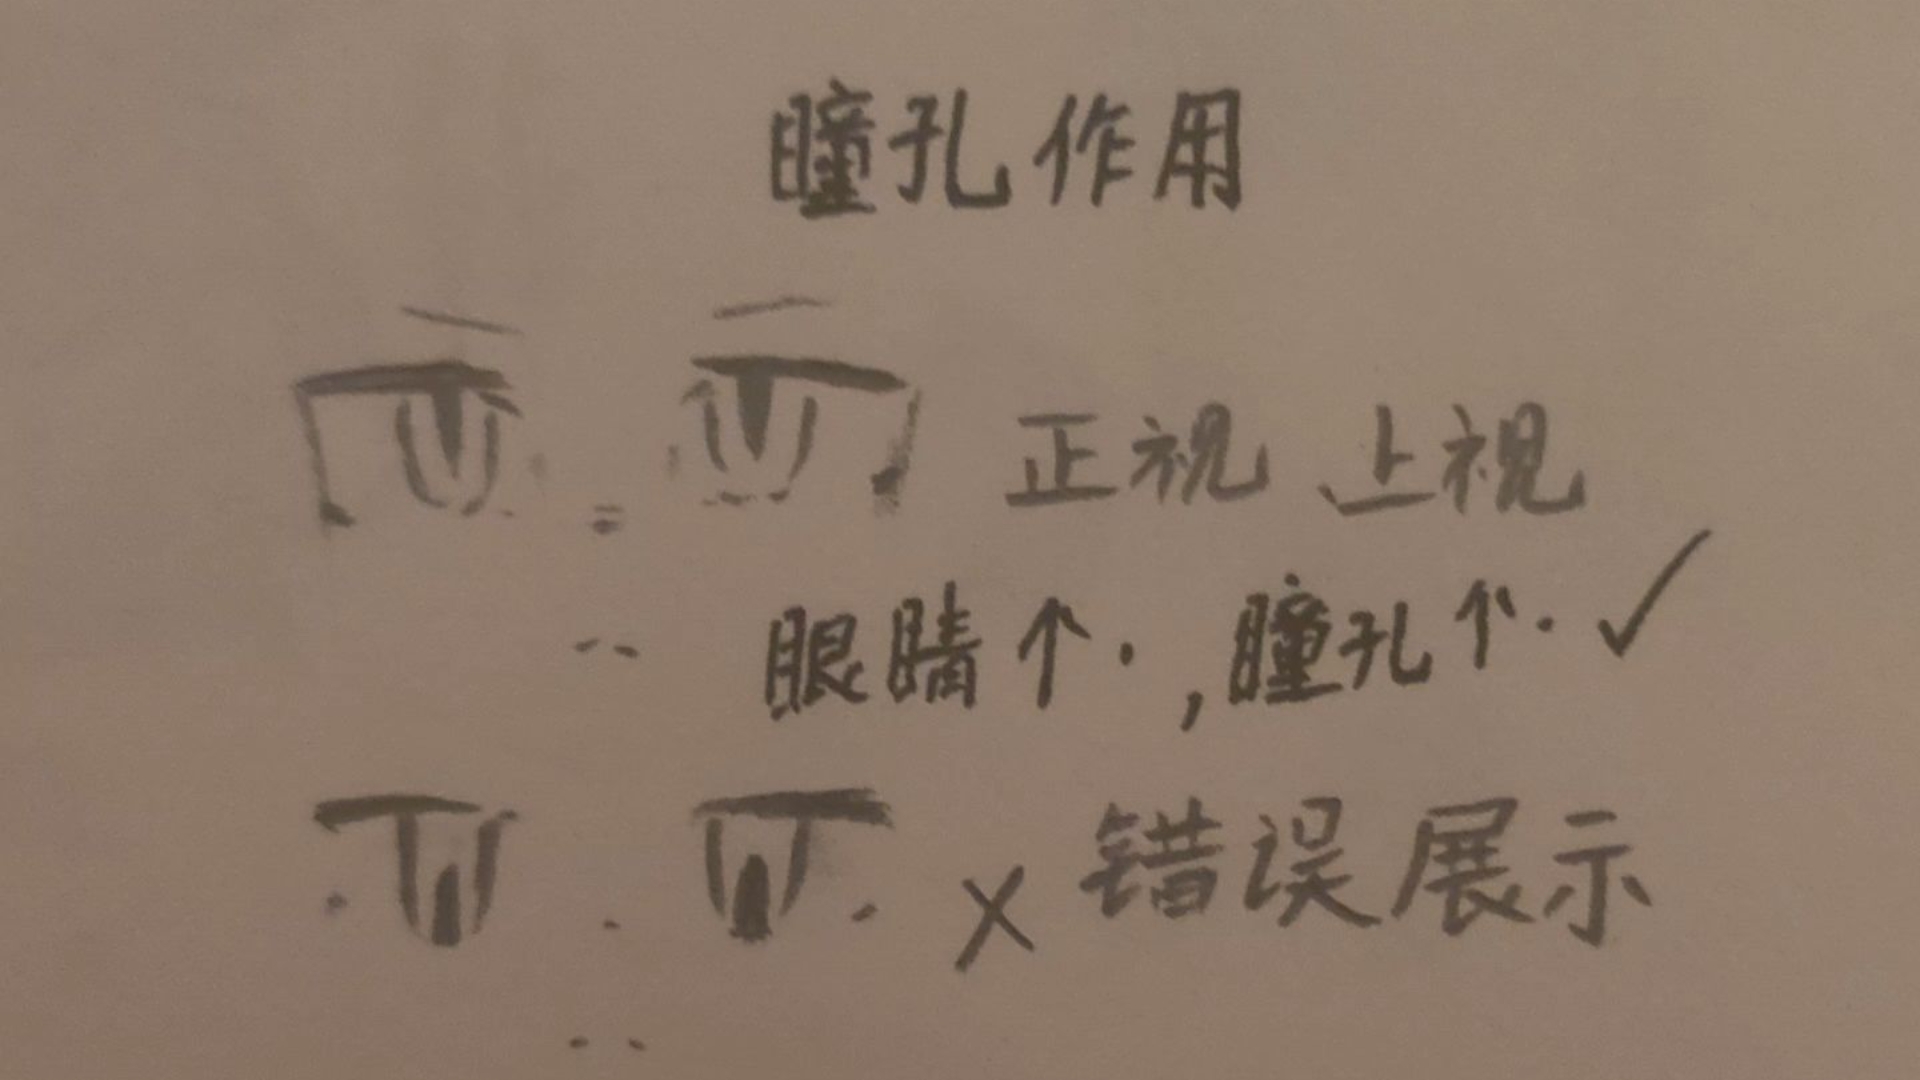 瞳孔作用
正视 上视
眼睛↑.,瞳孔↑.✓
×错误展示